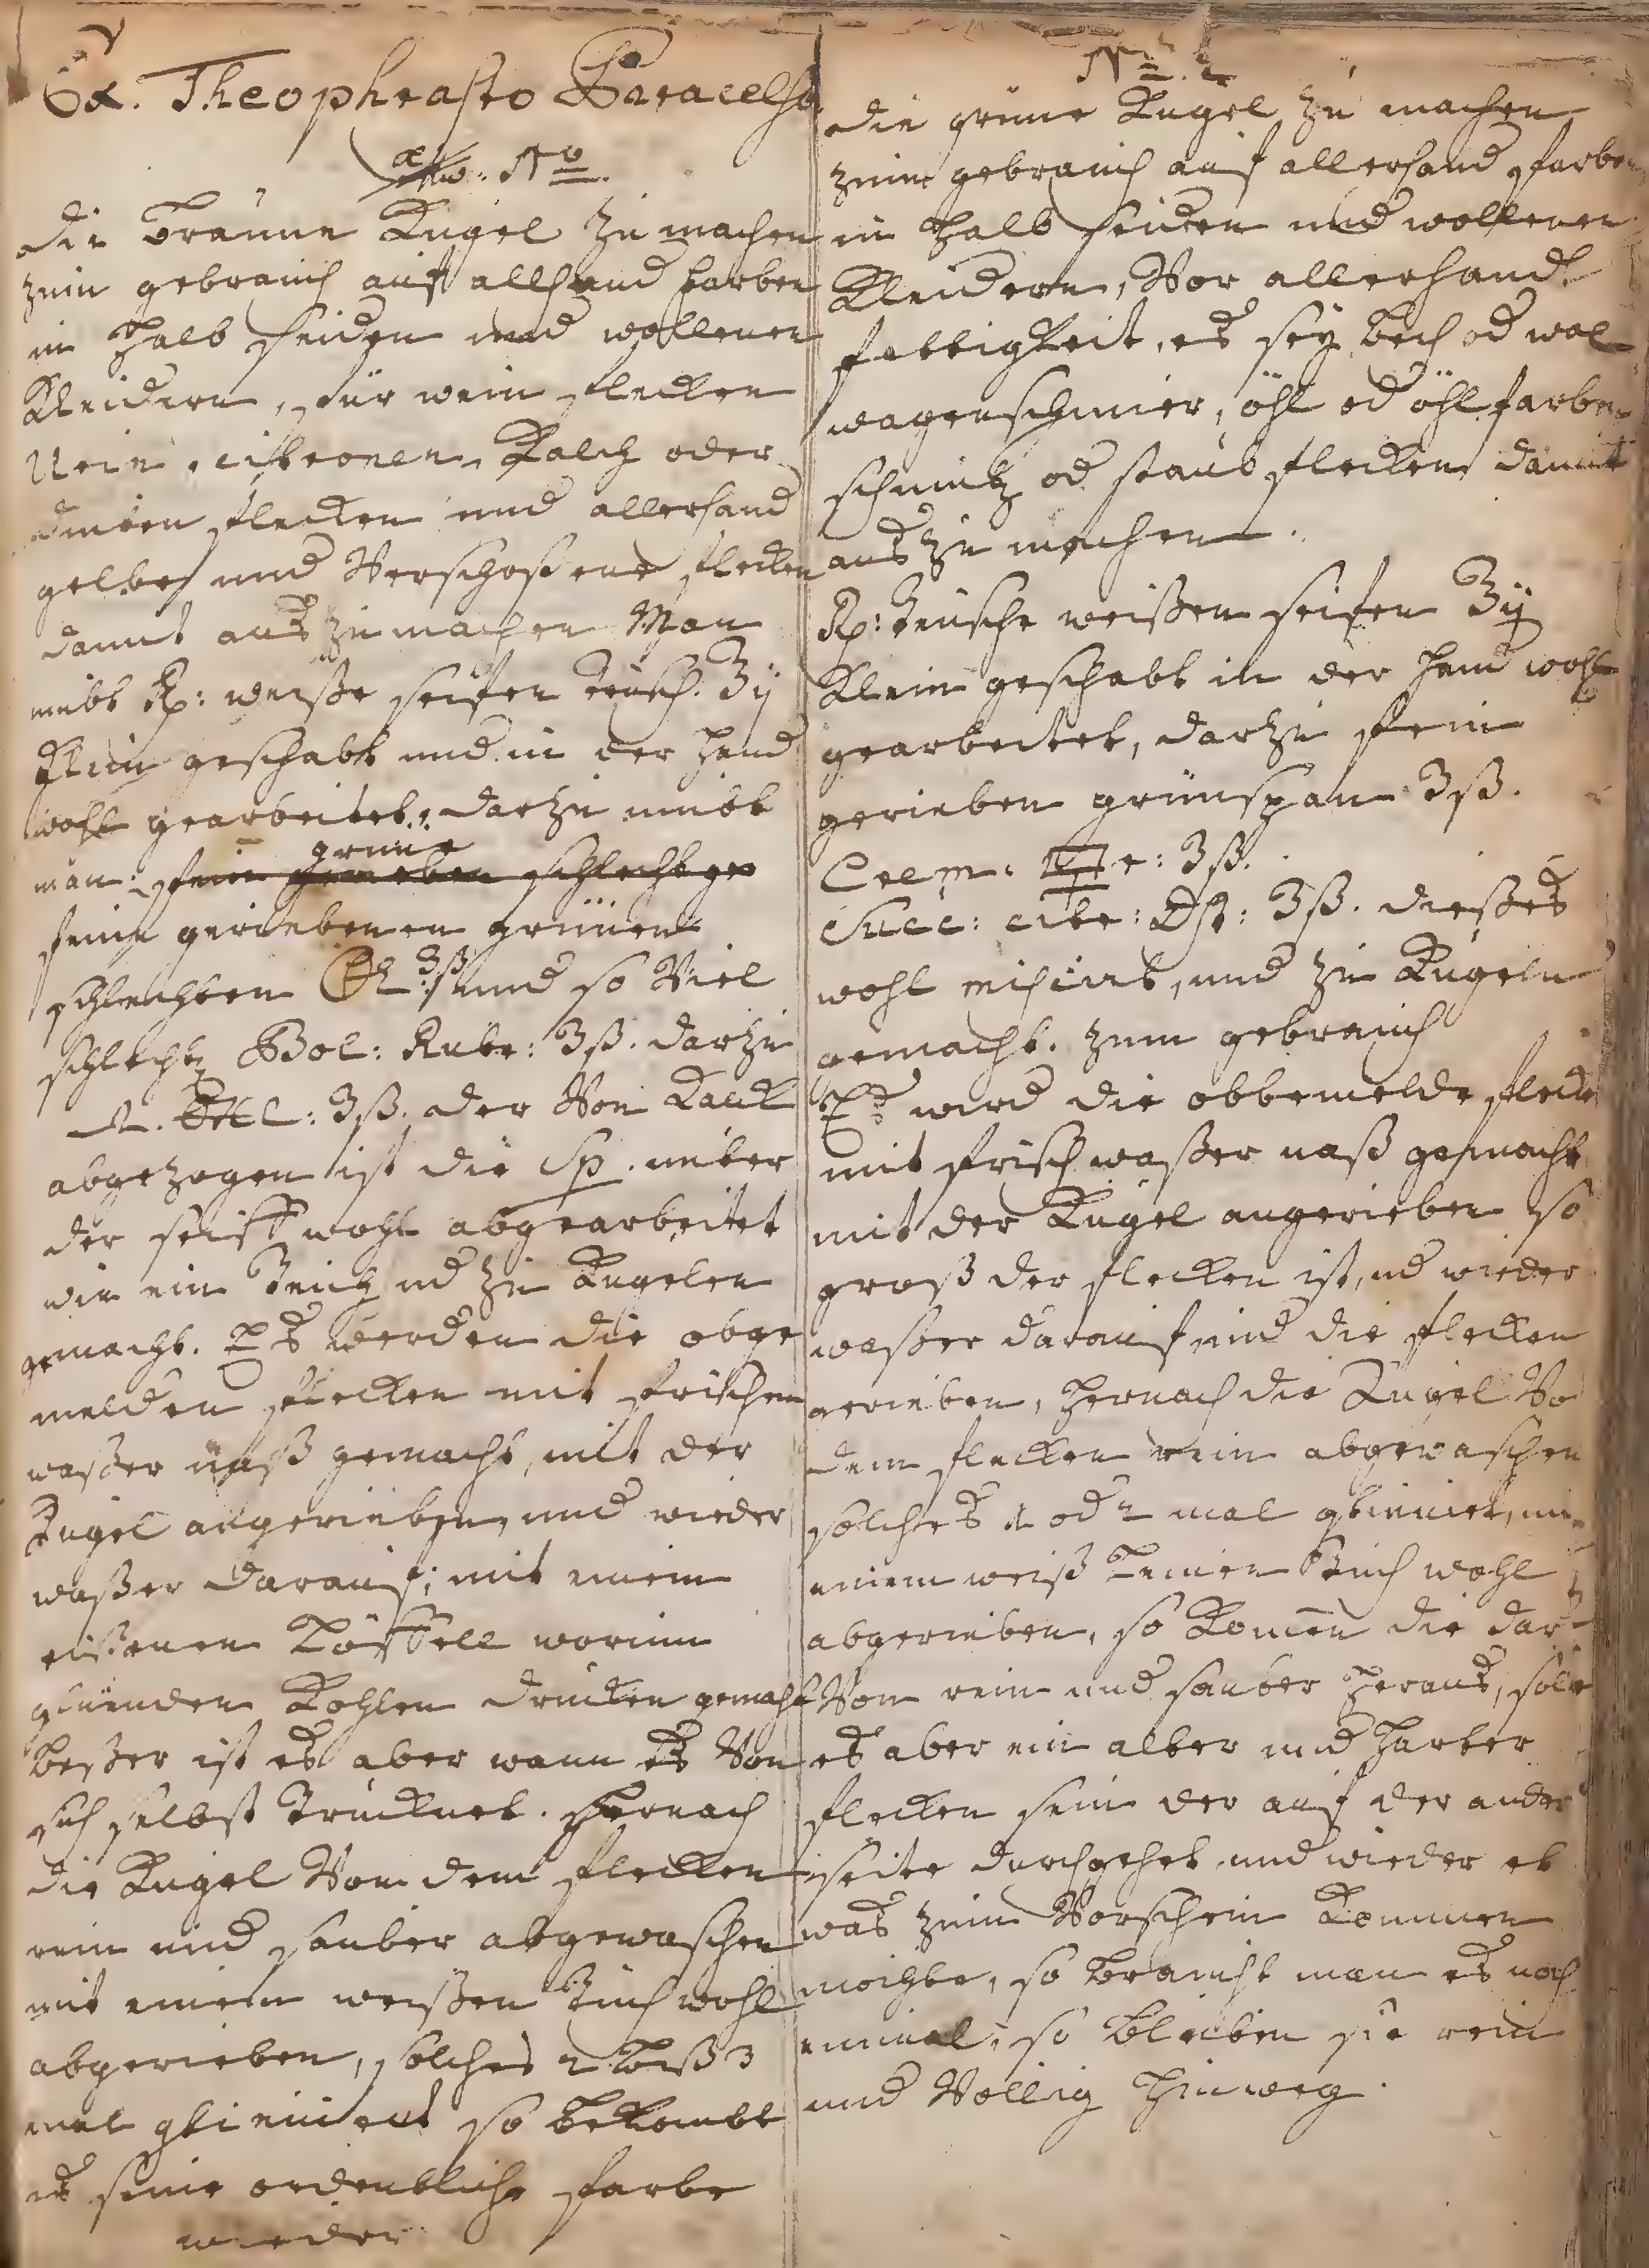 Ex. Theophrasto Paracelso
No
die braune Kugel zu machen
zum gebrauch auf allhand farben
in halb seiden und wollenen
Kleidern, für wein flecken
Urin, citronen, Kalch oder
dinten flecken und allerhand
gelbe und Verschoßene flecken
damit aus zu machen Man
nimbt Rp: weiße seifen Ʒij
Klein geschabt und in der hand
wohl gearbeitet, darzu nimbt
man: fein gerieben schlecht
grune
fein geriebenen grünen
schlechten Ʒß und so Viel
schlecht Bol: Rubr: Ʒß. darzu
Ʒß. der Von
abgezogen ist die Sp. unter
der seiff wohl abgearbeitet
wie ein Teich ud zu Kugelen
gemacht. Es werden die obge
melden flecken mit frischen
waßer naß gemacht, mit der
Kugel angerieben, und wieder
waßer darauf, mit einem
eißenen Löffell worinn
gluenden Kohlen drucken gemacht
beßer ist es aber wann es Von
sich selbst trucknet. Hernach
die Kugel Von dem flecken
rein und sauber abgewaschen
mit einem weißen Tuch wohl
abgerieben, solches 2 biß 3
mal so bekombt
es seine ordentliche farbe
wieder
No. 2
die grune Kugel zu machen
zum gebrauch auf allerhand farben
in halb seiden und wollenen
Kleidern, Vor allerhand
fettigkeit, es sey bech od wol
wagenschmier, öhl od öhlfarben
schmutz od staub flecken damit
aus zu machen.
Rp: weißen seifen Ʒij
Klein geschabt in der hand wohl
gearbeitet, darzu fein
gerieben grünspan Ʒß.
Crem: Ʒß.
Succ: citr: Ʒß. dießes
wohl und zu Kugeln
gemacht. zum gebrauch
Es wird die obbemelde flecken
mit frisch waßer naß gemacht
mit der Kugel angerieben so
groß der flecken ist, ud wieder
waßer darauf und die flecken
gerieben, hernach die Kugel Vo
dem flecken rein abgewaschen
solches 1 od 2 mal
einem weiß Leinen Tuch wohl
abgerieben, so Komen die dar
Von rein und sauber heraus, solte
es aber ein alter und harter
flecken sein der auf der ander
seite durchgehet und wieder et
was zum Vorschein Kommen
moichte, so braucht man es noch
einmal, so bleiben sie rein
und Vollig hinweg.